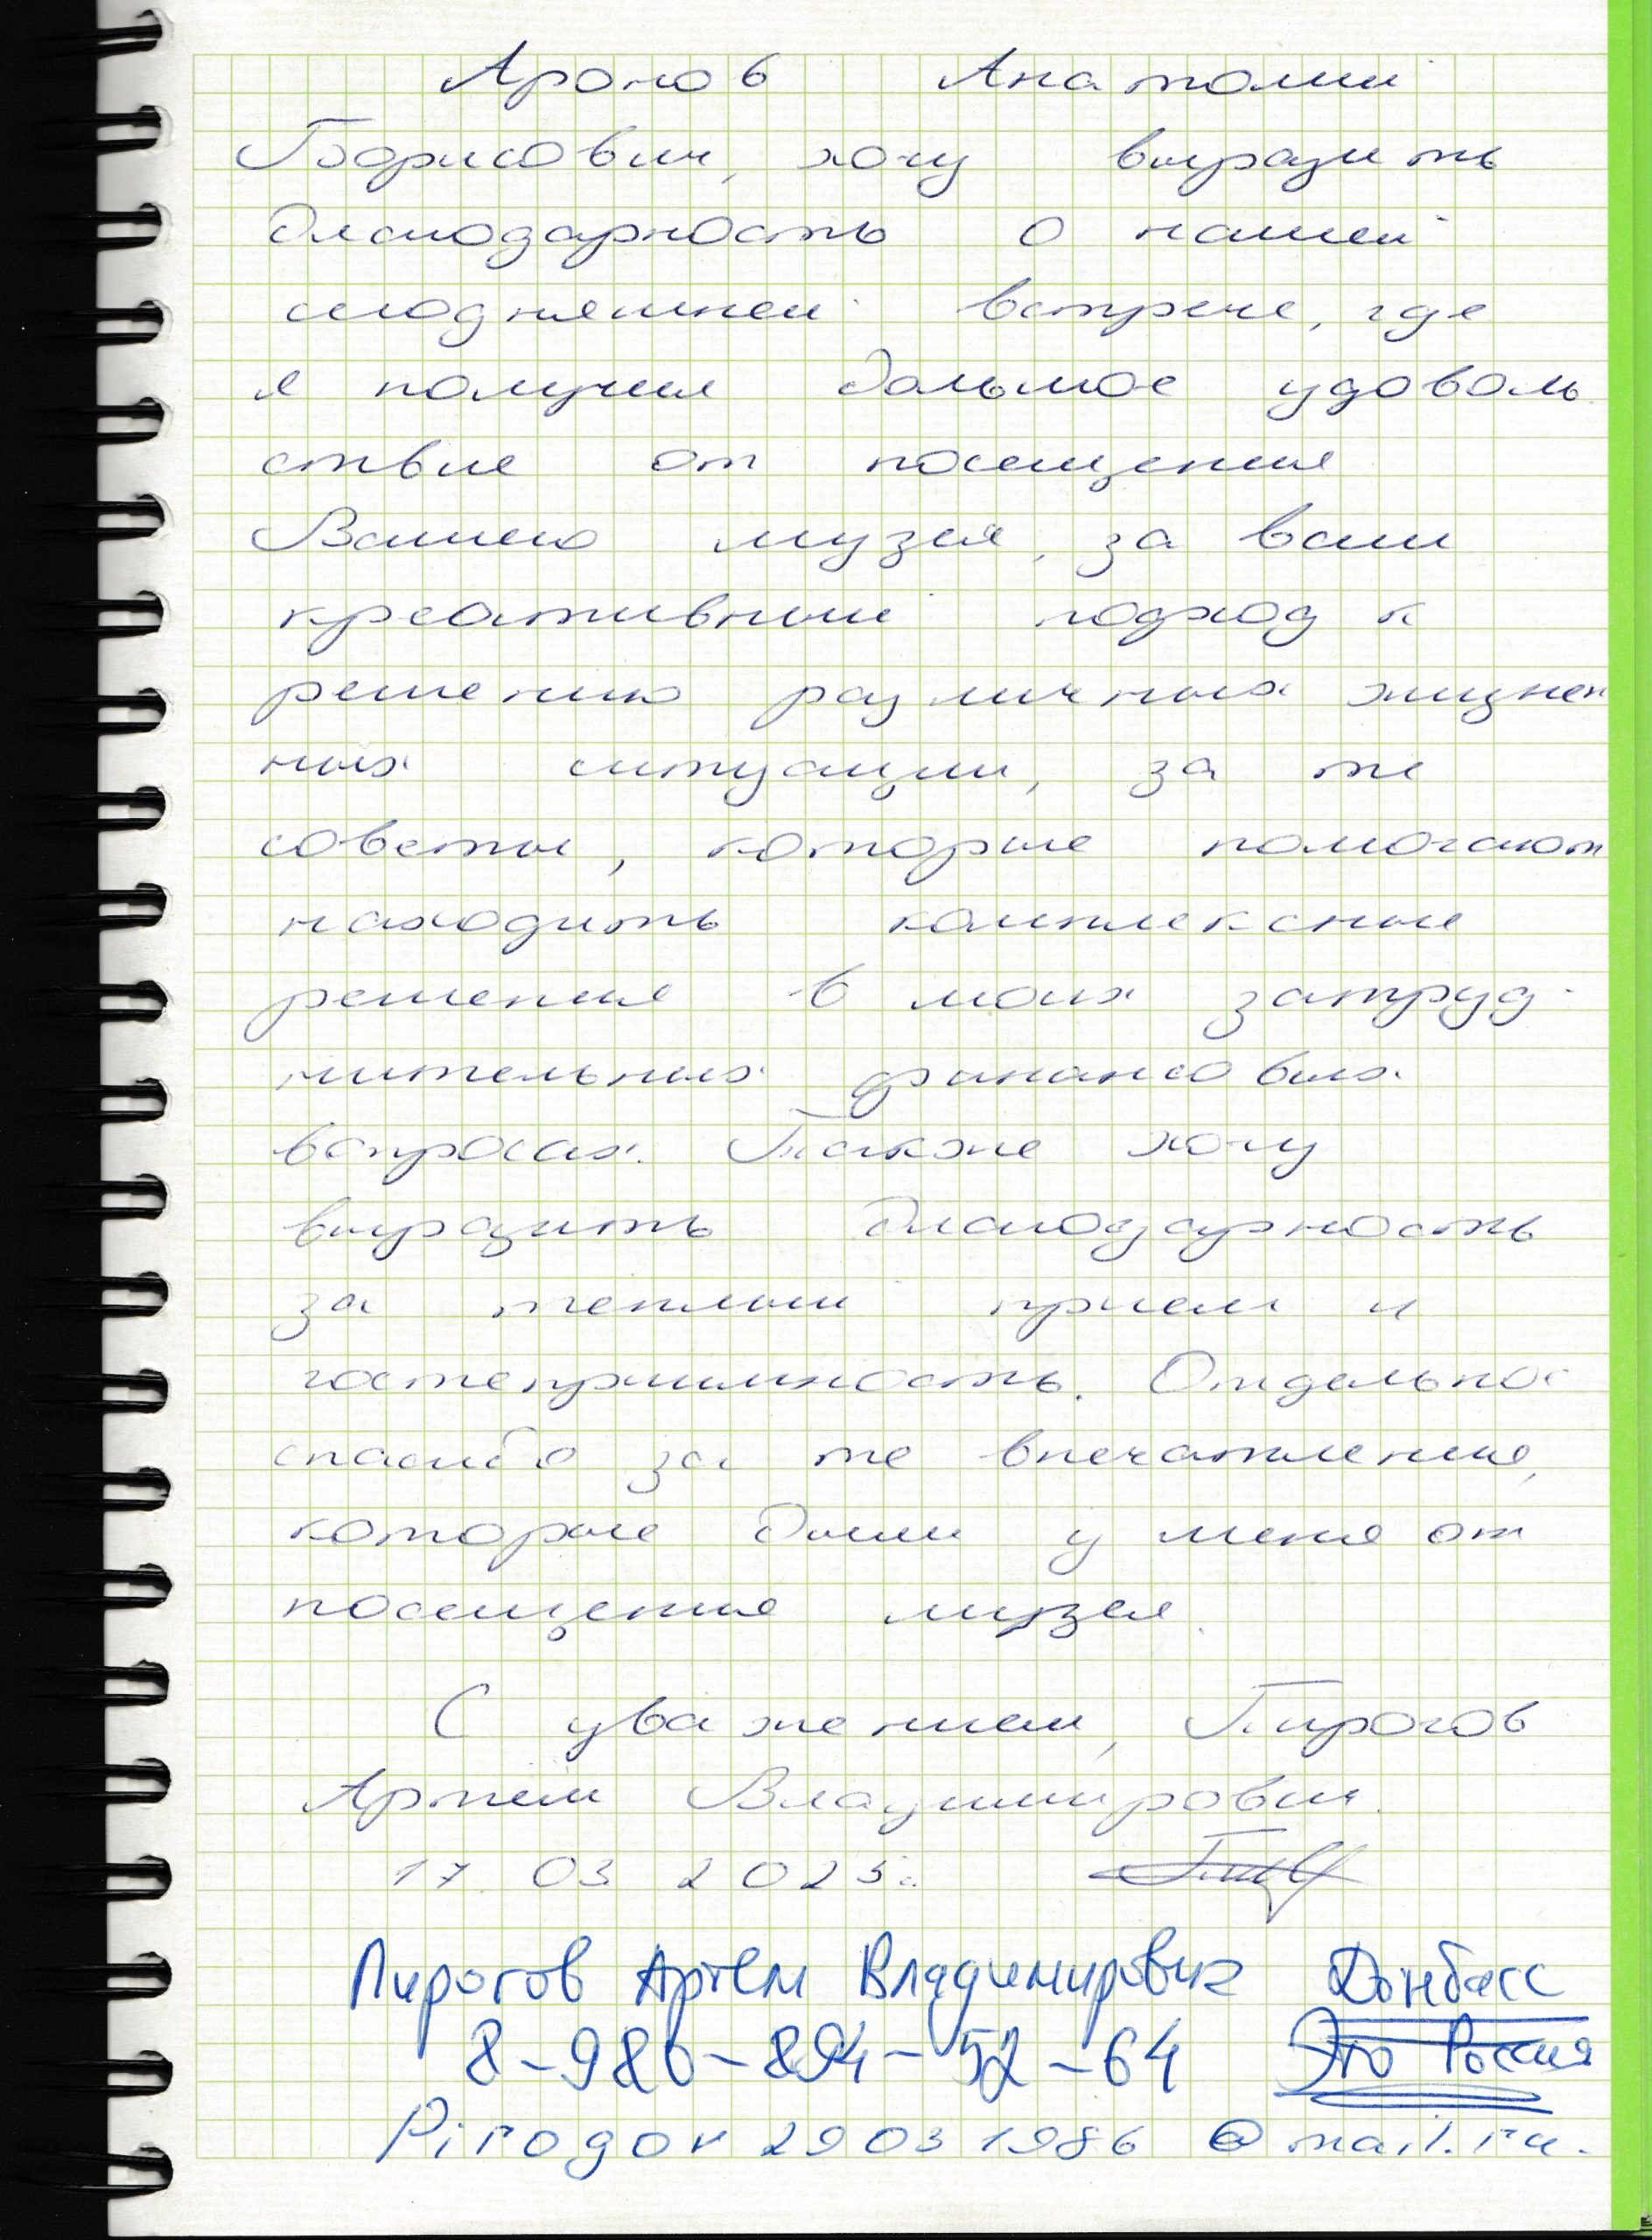 Аронов Анатолий
Борисович, хочу выразить
благодарность о нашей
сегодняшней встрече, где
я получил большое удоволь
ствие от посещения
Вашего музея, за ваш
креативный подход к
решению различных жизнен
ных ситуации, за те
советы, которые помогают
находить комплексные
решения в моих затруд-
нительных финансовых
вопросах. Также хочу
выразить благодарность
за теплый прием и
гостеприимность. Отдельное
спасибо за те впечатления,
которые были у меня от
посещения музея.
С уважением, Пирогов
Артём Владимирович.
17.03 2025г.
Пирогов Артём Владимирович Донбасс
8-980-894-52-64 Это Россия
Pirogov29031986@mail.ru.